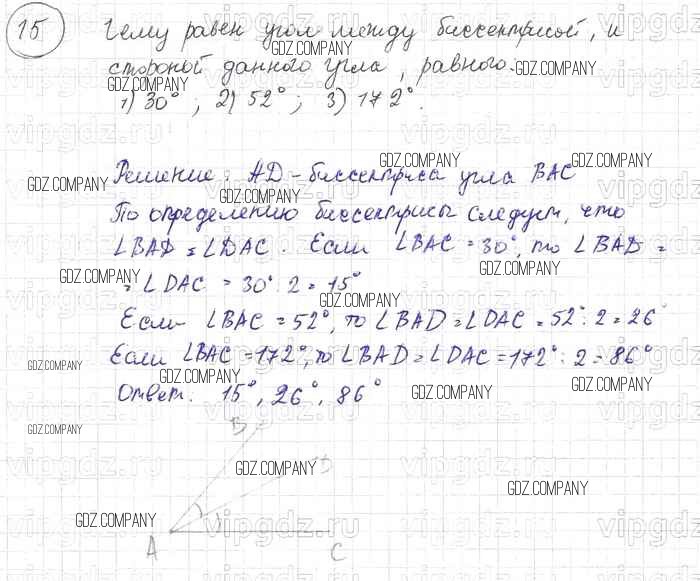 15 Чему равен угол между биссектрисой, и
стороной данного угла, равного.
1) 30°; 2) 52°; 3) 172°.
Решение: AD - биссектриса угла BAC
По определению биссектрисы следует, что
∠BAD = ∠DAC. Если ∠BAC = 30°, то ∠BAD =
= ∠DAC = 30° : 2 = 15°
Если ∠BAC = 52°, то ∠BAD = ∠DAC = 52° : 2 = 26°
Если ∠BAC = 172°, то ∠BAD = ∠DAC = 172° : 2 = 86°
Ответ. 15°, 26°, 86°
B
D
A
C
GDZ.COMPANY
vipgdz.ru